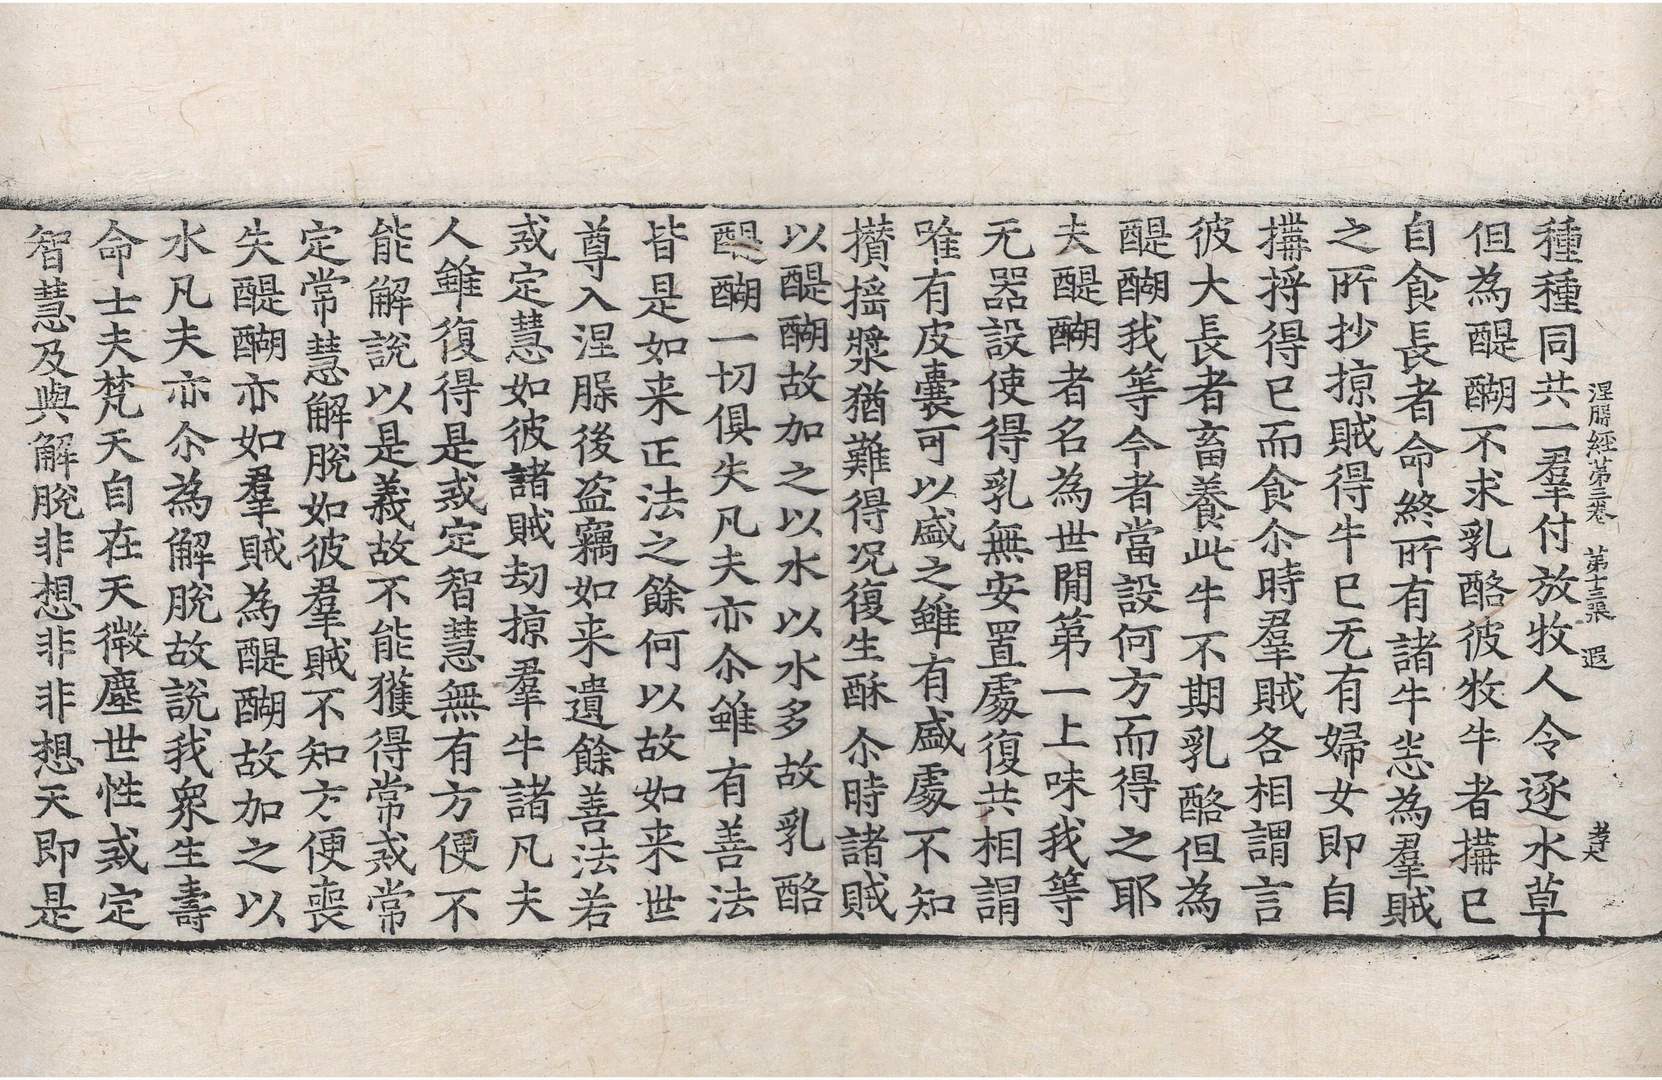 涅槃經第三卷　第十三張　遐　孝大
種種同共一羣付放牧人令逐水草
但為醍醐不求乳酪彼牧牛者搆已
自食長者命終所有諸牛悉為羣賊
之所抄掠賊得牛已无有婦女即自
搆捋得已而食尒時羣賊各相謂言
彼大長者畜養此牛不期乳酪但為
醍醐我等今者當設何方而得之耶
夫醍醐者名為世閒第一上味我等
无器設使得乳無安置處復共相謂
唯有皮囊可以盛之雖有盛處不知
攢搖漿猶難得況復生酥尒時諸賊
以醍醐故加之以水以水多故乳酪
醍醐一切俱失凡夫亦尒雖有善法
皆是如来正法之餘何以故如来世
尊入涅槃後盜竊如来遺餘善法若
戒定慧如彼諸賊劫掠羣牛諸凡夫
人雖復得是戒定智慧無有方便不
能解說以是義故不能獲得常戒常
定常慧解脫如彼羣賊不知方便喪
失醍醐亦如羣賊為醍醐故加之以
水凡夫亦尒為解脫故說我衆生壽
命士夫梵天自在天微塵世性戒定
智慧及與解脫非想非非想天即是